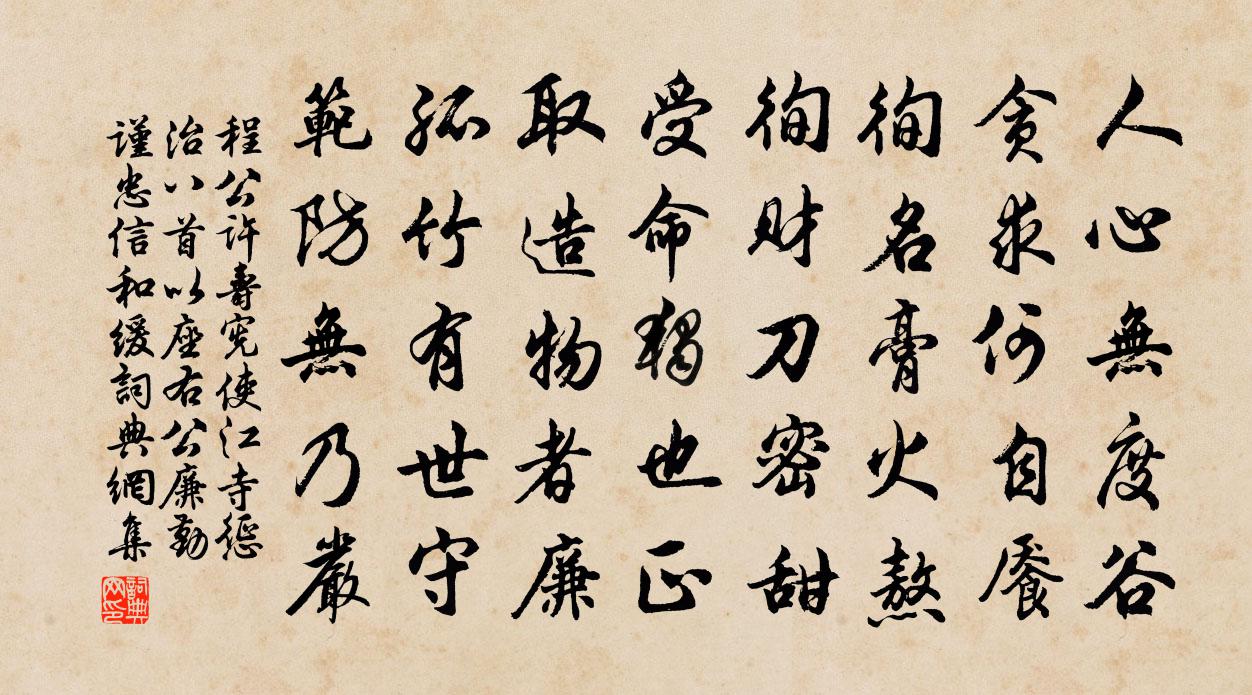 人心無度谷
貪求何自饜
徇名膏火熬
徇財刀密甜
受命獨也正
取造物者廉
孤竹有世守
範防無乃嚴
程公許壽宪使江寺惩
治八首以座右公廉勤
謹忠信和緩詞典網集
詞典網印